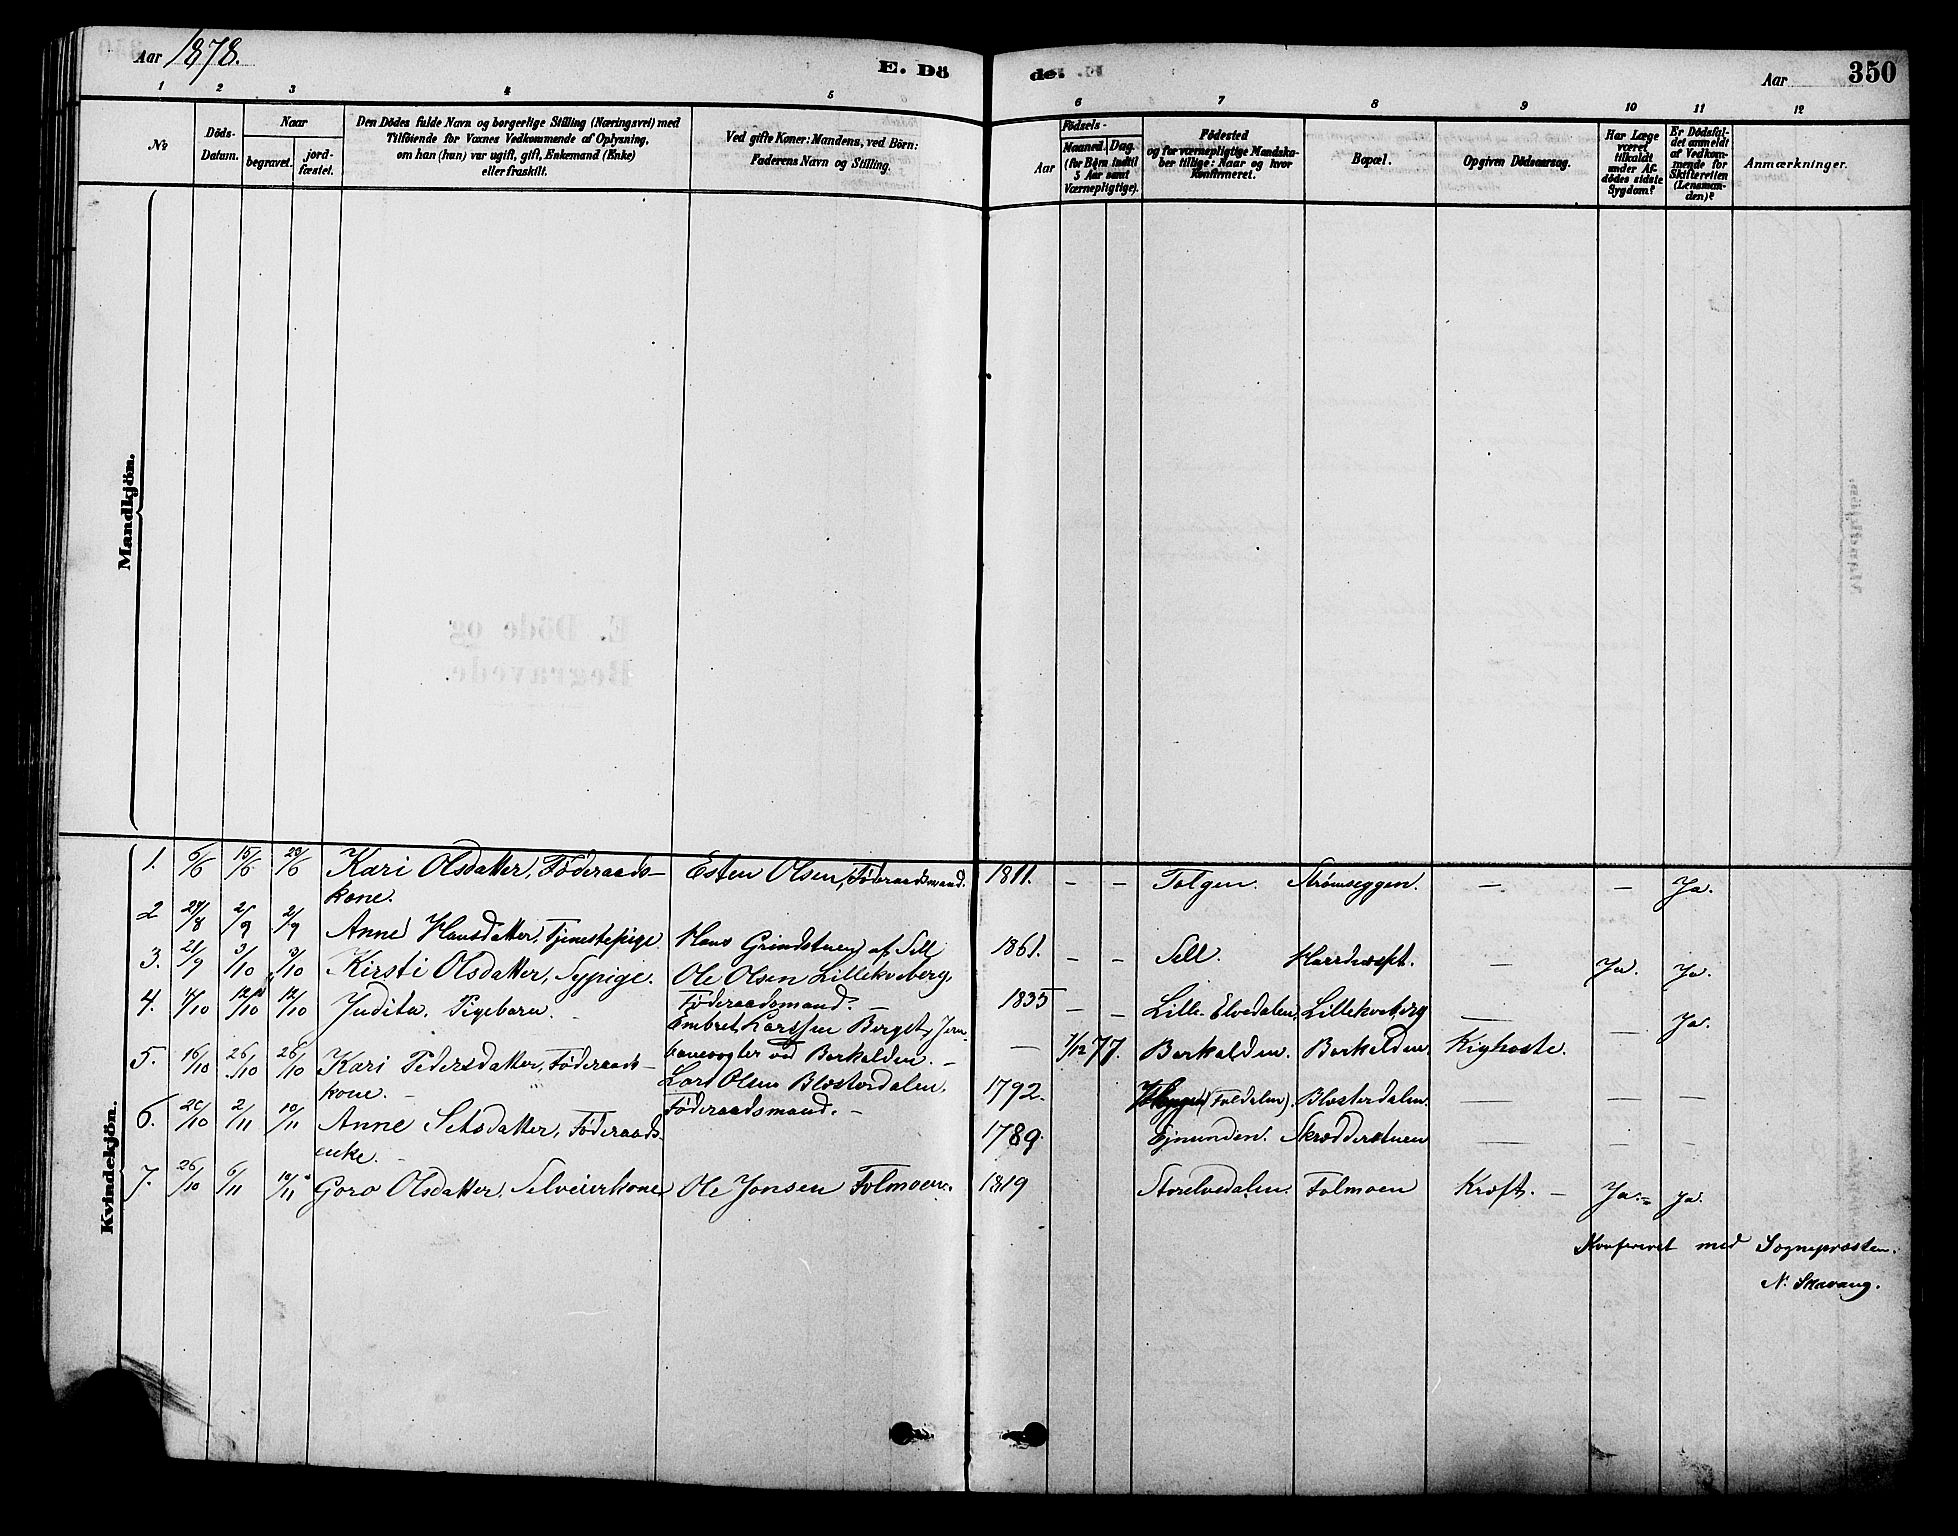 Aar 1878.
E. Dö
de.
Aar
350
1 2 3 4 5 6 7 8 9 10 11 12
№
Döds-
Datum.
Naar
begravet.
jord-
fæstet.
Den Dödes fulde Navn og borgerlige Stilling (Næringsvei) med
Tilföiende for Voxnes Vedkommende af Oplysning,
om han (hun) var ugift, gift, Enkemand (Enke)
eller fraskilt.
Ved gifte Koner: Mandens, ved Börn:
Faderens Navn og Stilling.
Födsels-
Aar
Maaned.
Dag.
(for Börn indtil
5 Aar samt
Værnepligtige).
Födested
og for værnepligtige Mandska-
ber tillige: Naar og hvor
Konfirmeret.
Bopæl.
Opgiven Dödsaarsag.
Har Læge
været
tilkaldt
under Af-
dödes sidste
Sygdom?
Er Dödsfal-
det anmeldt
af Vedkom-
mende for
Skifteretten
(Lensman-
den)?
Anmærkninger.
Mandkjön.
E. Döde og
Begravede.
Kvindekjön.
1. 6/6 15/6 20/6 Kari Olsdatter, Föderaads- Esten Olsen, Föderaadsmand. 1811. – – Tolgen. Strömseggen. – – Ja.
kone.
2 24/8 2/9 2/9 Anne Hansdatter, Tjenestepige Hans Grindstuen af Sell 1861. – – Sell. – Ja. Ja.
3. 21/9 3/10 3/10 Kirsti Olsdatter, Sypige. Ole Olsen Lillekveberg, 1835 – – Lille-Elvedalen, Lillekveberg – – Ja.
Föderaadsmand. –
4. 4/10 12/10 12/10 Judita, Pigebarn. – Embret Larssen Bergst, Jern- – 1/12 77. Barkalden. Barkalden. Kighoste.
banevogter ved Barkalden. –
5. 16/10 26/10 26/10 Kari Pedersdatter, Föderaads- Lars Olsen Blæsterdalen, 1792. (Foldalen). Blæsterdalen. – – –
kone. – Föderaadsmand. –
6. 20/10 2/11 10/11 Anne Setsdatter, Föderaads- 1789. Ejnunden. Skrædderstuen – – –
enke. –
7. 26/10 6/11 10/11 Goro Olsdatter, Selveierkone Ole Jonsen Folmoen. 1819 Storelvedalen. Folmoen Kræft. – Ja. Ja.
Konfereret med Sognepræsten.
N. Skavang.